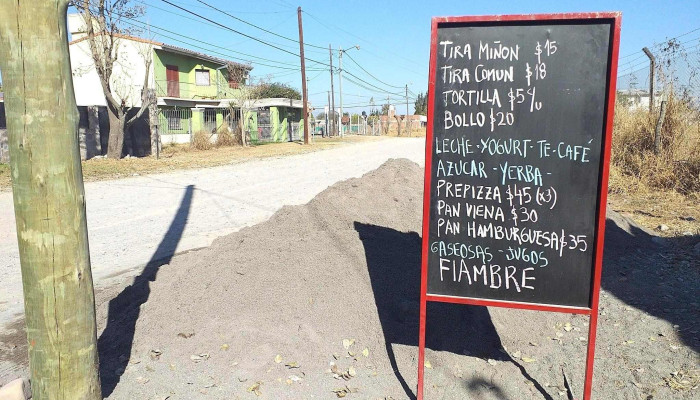 TIRA MIÑON $15
TIRA COMUN $18
TORTILLA $5 c/u
BOLLO $20
LECHE - YOGURT - TE - CAFÉ
AZUCAR - YERBA -
PREPIZZA $45 (x3)
PAN VIENA $30
PAN HAMBURGUESA $35
GASEOSAS - JUGOS
FIAMBRE